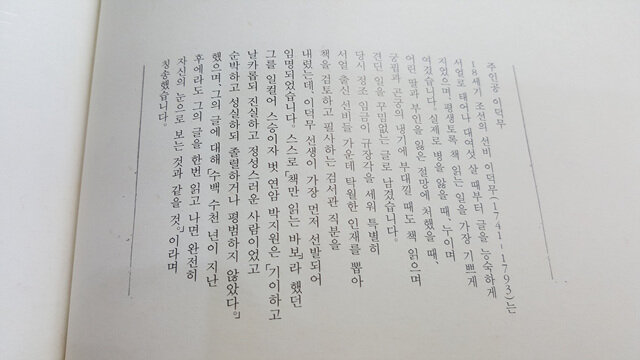 주인공 이덕무
18세기 조선의 선비 이덕무(1741-1793)는
서얼로 태어나 대여섯 살 때부터 글을 능숙하게
지었으며, 평생토록 책 읽는 일을 가장 기쁘게
여겼습니다. 실제로 병을 앓을 때, 누이며
어린 딸과 부인을 잃은 절망에 처했을 때,
궁핍과 곤궁의 냉기에 부대낄 때도 책 읽으며
견딘 일을 꾸밈없는 글로 남겼습니다.
당시 정조 임금이 규장각을 세워 특별히
서얼 출신 선비들 가운데 탁월한 인재를 뽑아
책을 검토하고 필사하는 검서관 직분을
내렸는데, 이덕무 선생이 가장 먼저 선발되어
임명되었습니다. 스스로 「책만 읽는 바보」라 했던
그를 일컬어 스승이자 벗 연암 박지원은 「기이하고
날카롭되 진실하고 정성스러운 사람이었고
순박하고 성실하되 졸렬하거나 평범하지 않았다.」
했으며, 그의 글에 대해 「수백 수천 년이 지난
후에라도 그의 글을 한번 읽고 나면 완전히
자신의 눈으로 보는 것과 같을 것.」이라며
칭송했습니다.